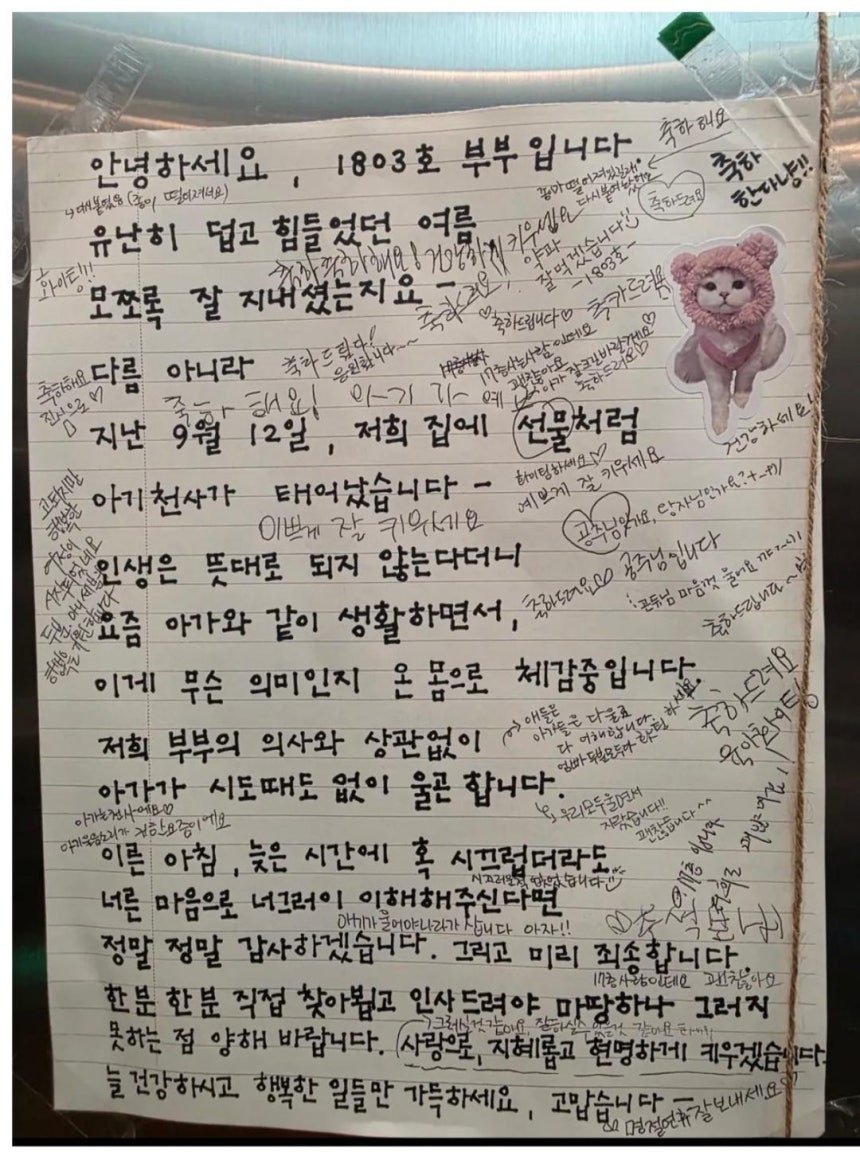 안녕하세요, 1803호 부부입니다
축하해요
축하
한다냥!!
다시 붙여놨어요
축하드려요
유난히 덥고 힘들었던 여름
화이팅!!
축하축하해요! 건강하게 키우십쇼
약과
잘먹겠습니다!!
-1803호-
모쪼록 잘 지내셨는지요 -
축하드려요,
축하드려요
♡축하드립니다♡
다름 아니라
축하드립니다!
응원합니다~~
17층사는사람인데요
괜찮아요
아가 잘크길바랄게요♡
축하드려요♡
축하해요
진심으로♡
축하해요! 아기가
지난 9월 12일, 저희 집에 선물처럼
건강하세요!
화이팅하세요♡
예쁘게 잘 키우세요
아기천사가 태어났습니다 -
이쁘게 잘 키우세요
공주님인가요, 왕자님인가요?
인생은 뜻대로 되지 않는다더니
축하드려요♡♡ 공주님입니다
요즘 아가와 같이 생활하면서,
공듀님 마음껏 울어요
축하드립니다~
이게 무슨 의미인지 온 몸으로 체감중입니다.
축하드려요
육아화이팅!
저희 부부의 의사와 상관없이
애들은
아가들은 다울죠
다 이해합니다.
아가가 시도때도 없이 울곤 합니다.
아가는천사예요♡
아기울음소리가 귀한요즘이에요
우리모두울면서
자랐습니다!!
괜찮습니다^^
이른 아침, 늦은 시간에 혹 시끄럽더라도
시끄러운적 없었습니다
너른 마음으로 너그러이 이해해주신다면
아기가울어야나라가삽니다 아자!!
정말 정말 감사하겠습니다. 그리고 미리 죄송합니다.
17층사람인데요 괜찮아요
한분 한분 직접 찾아뵙고 인사드려야 마땅하나 그러지
못하는 점 양해 바랍니다. 사랑으로, 지혜롭고 현명하게 키우겠습니다.
늘 건강하시고 행복한 일들만 가득하세요, 고맙습니다 -
명절연휴 잘보내세요